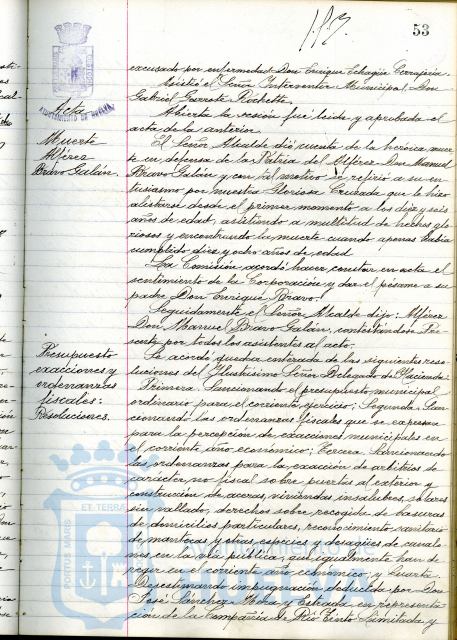 53
excusado por enfermedad Don Enrique Echagüe Perrejería.
Asistió el Señor Interventor Municipal, Don
Gabriel Garrote Rochette.
Abierta la sesión fué leida y aprobada el
Acta
acta de la anterior.
Muerte
Alférez
Bravo Galán.
El Señor Alcalde dió cuenta de la heróica muer-
te en defensa de la Patria del Alférez Don Manuel
Bravo Galán y con tal motivo se refirió a su en-
tusiasmo por nuestra Gloriosa Cruzada que le hizo
alistarse desde el primer momento a los diez y seis
años de edad, asistiendo a multitud de hechos glo-
riosos y encontrando la muerte cuando apenas había
cumplido diez y ocho años de edad
La Comisión acordó hacer constar en acta el
sentimiento de la Corporación y dar el pésame a su
padre Don Enrique Bravo.
Seguidamente el Señor Alcalde dijo: Alférez
Don Manuel Bravo Galán, contestándose Pre-
sente por todos los asistentes al acto.
Presupuesto
exacciones y
ordenanzas
fiscales:
Resoluciones.
Se acordó quedar enterada de las siguientes reso-
luciones del Ilustrísimo Señor Delegado de Hacienda:
Primera: Sancionando el presupuesto municipal
ordinario para el corriente ejercicio; Segunda: San-
cionando las ordenanzas fiscales que se expresan
para la percepción de exacciones municipales en
el corriente año económico; Tercera: Sancionando
las ordenanzas para la exacción de arbitrios de
carácter no fiscal sobre puertas al exterior y
construcción de aceras, viviendas insalubres, solares
sin vallado, derechos sobre recogida de basuras
de domicilios particulares, reconocimiento sanitario
de mantecas y otras especies y desagües de canalo-
nes en la vía pública que igualmente han de
regir en el corriente año económico, y Cuarta:
Desestimando impugnación deducida por Don
José Sánchez Mora y Estrada en representa-
ción de la Compañía de Río Tinto Limitada, y
PORTUS MARIS ET TERRAE
Ayuntamiento de
HUELVA